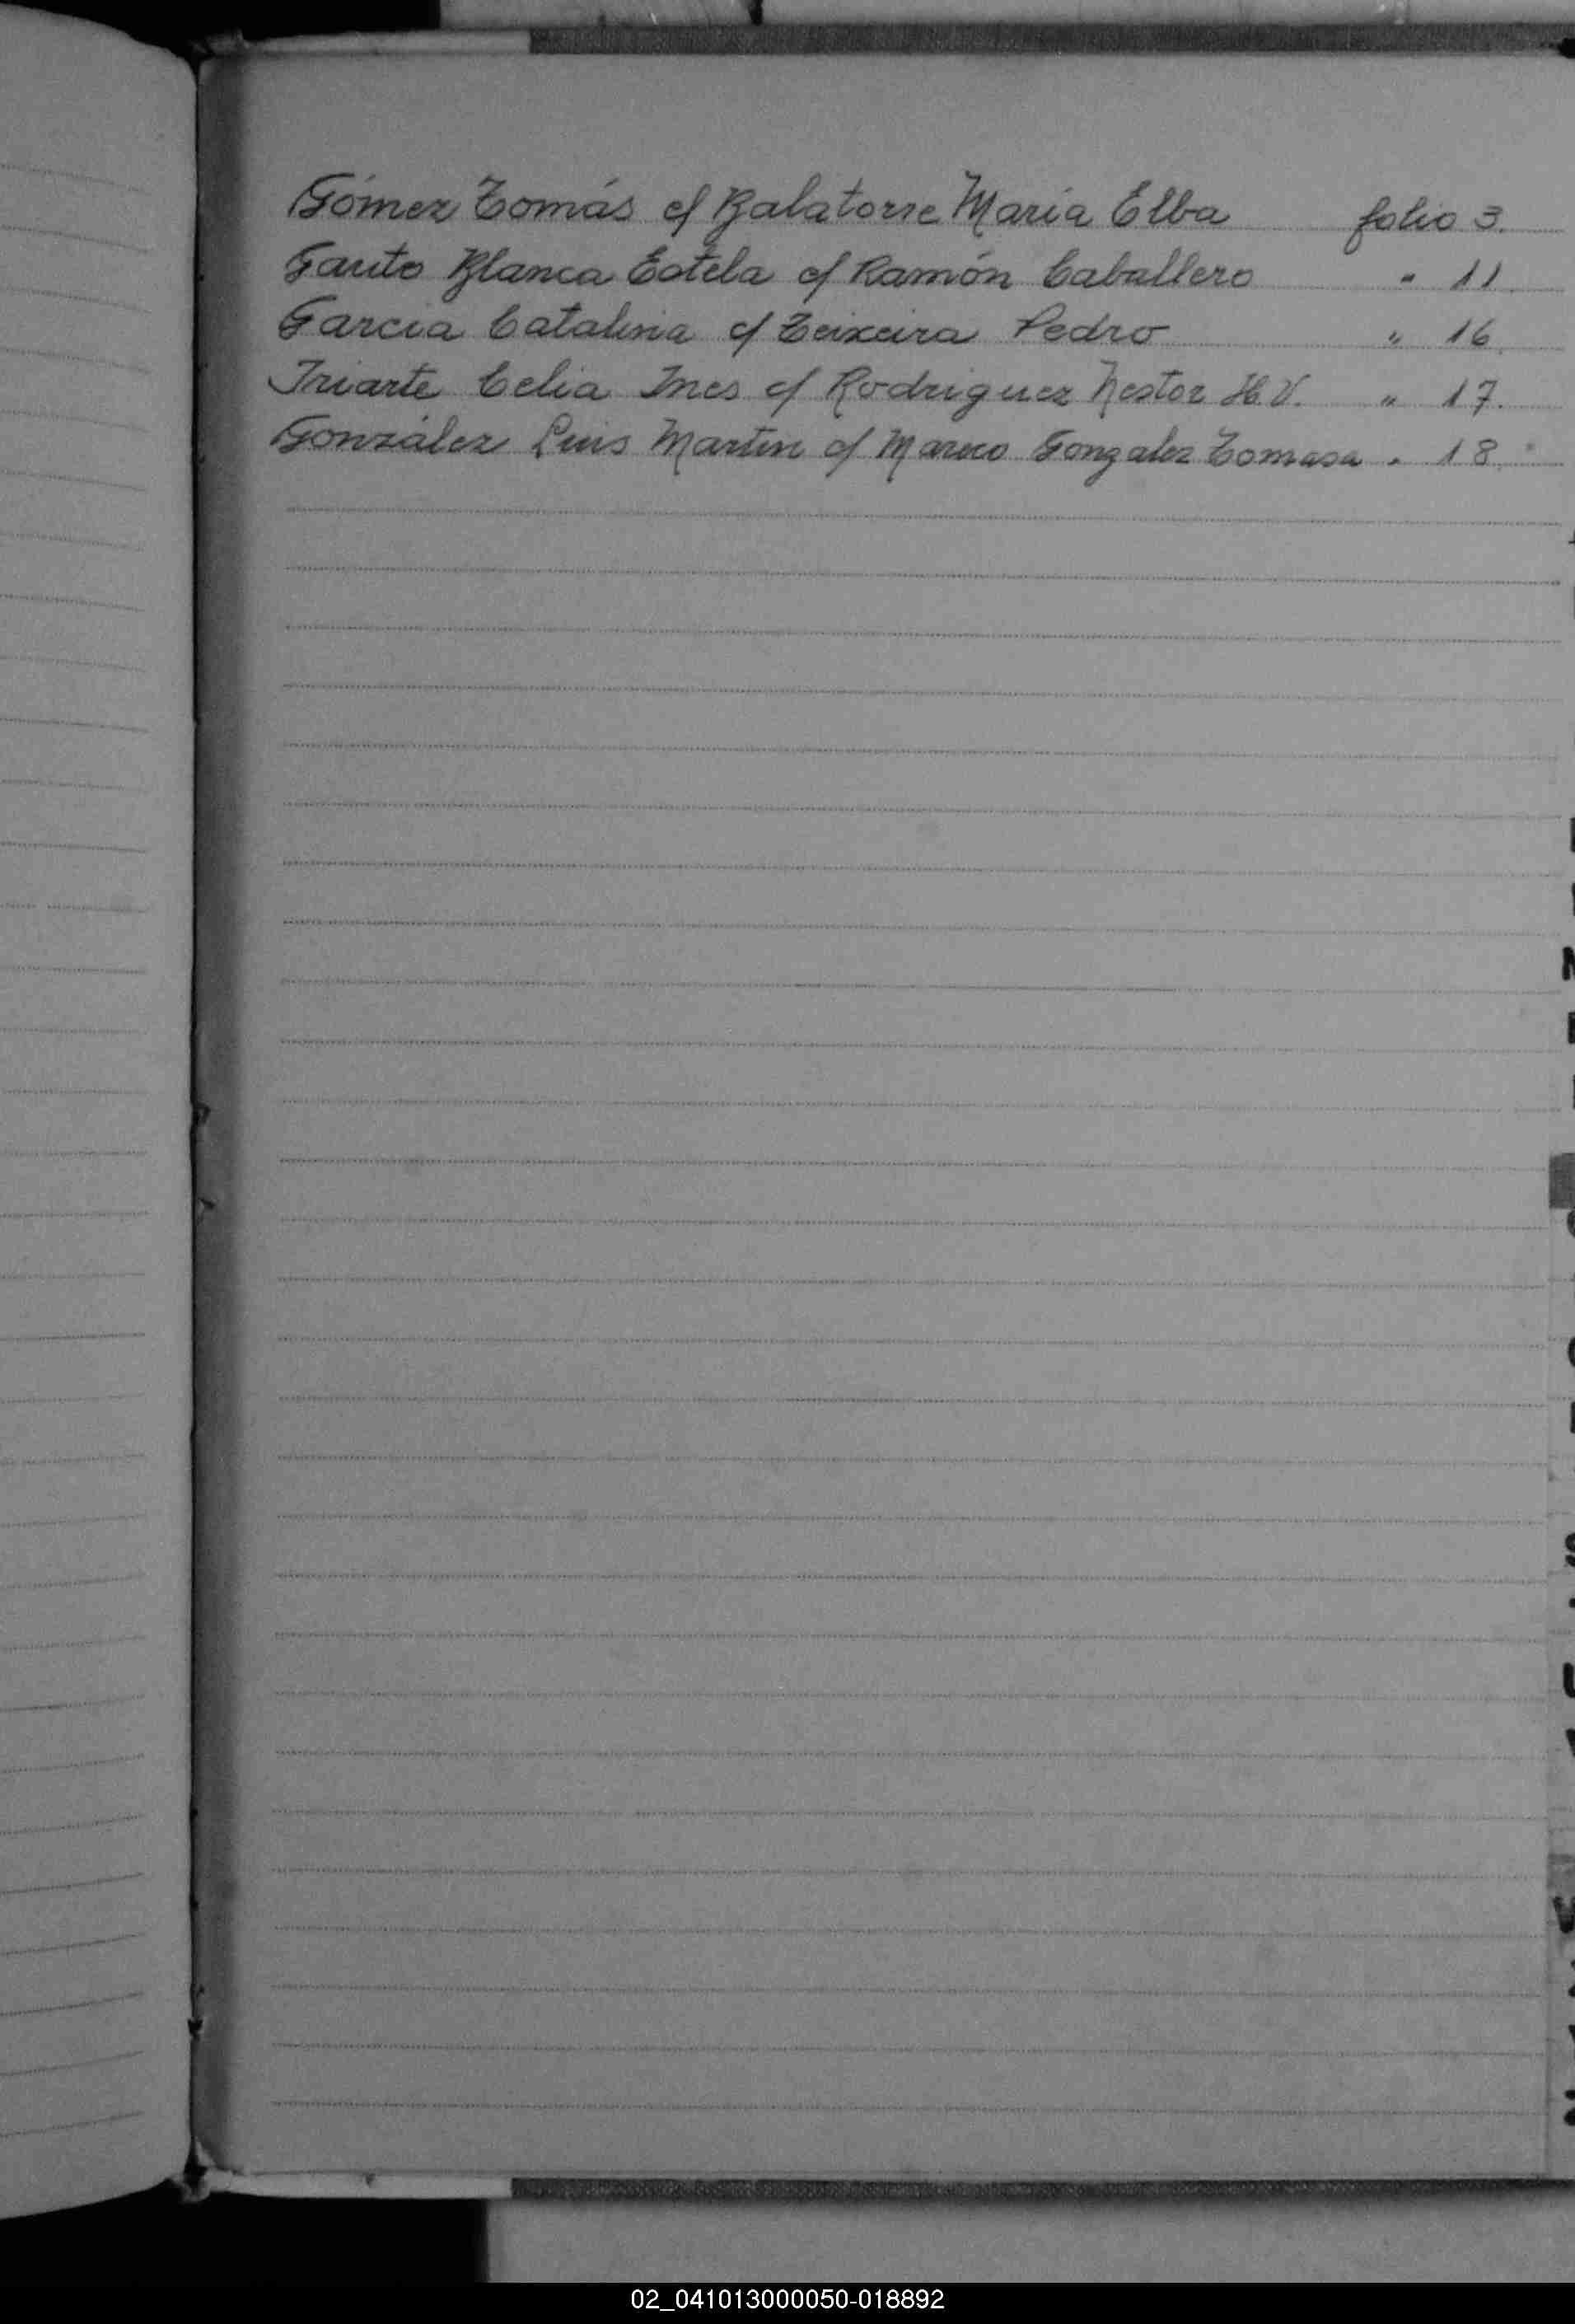 Gómez Tomás c/ Balatorre María Elba folio 3.
Gauto Blanca Estela c/ Ramón Caballero " 11.
Garcia Catalina c/ Teixeira Pedro " 16.
Iriarte Celia Ines c/ Rodriguez Nestor H.V. " 17.
González Luis Martin c/ Mareco Gonzalez Tomasa " 18.
02_041013000050-018892